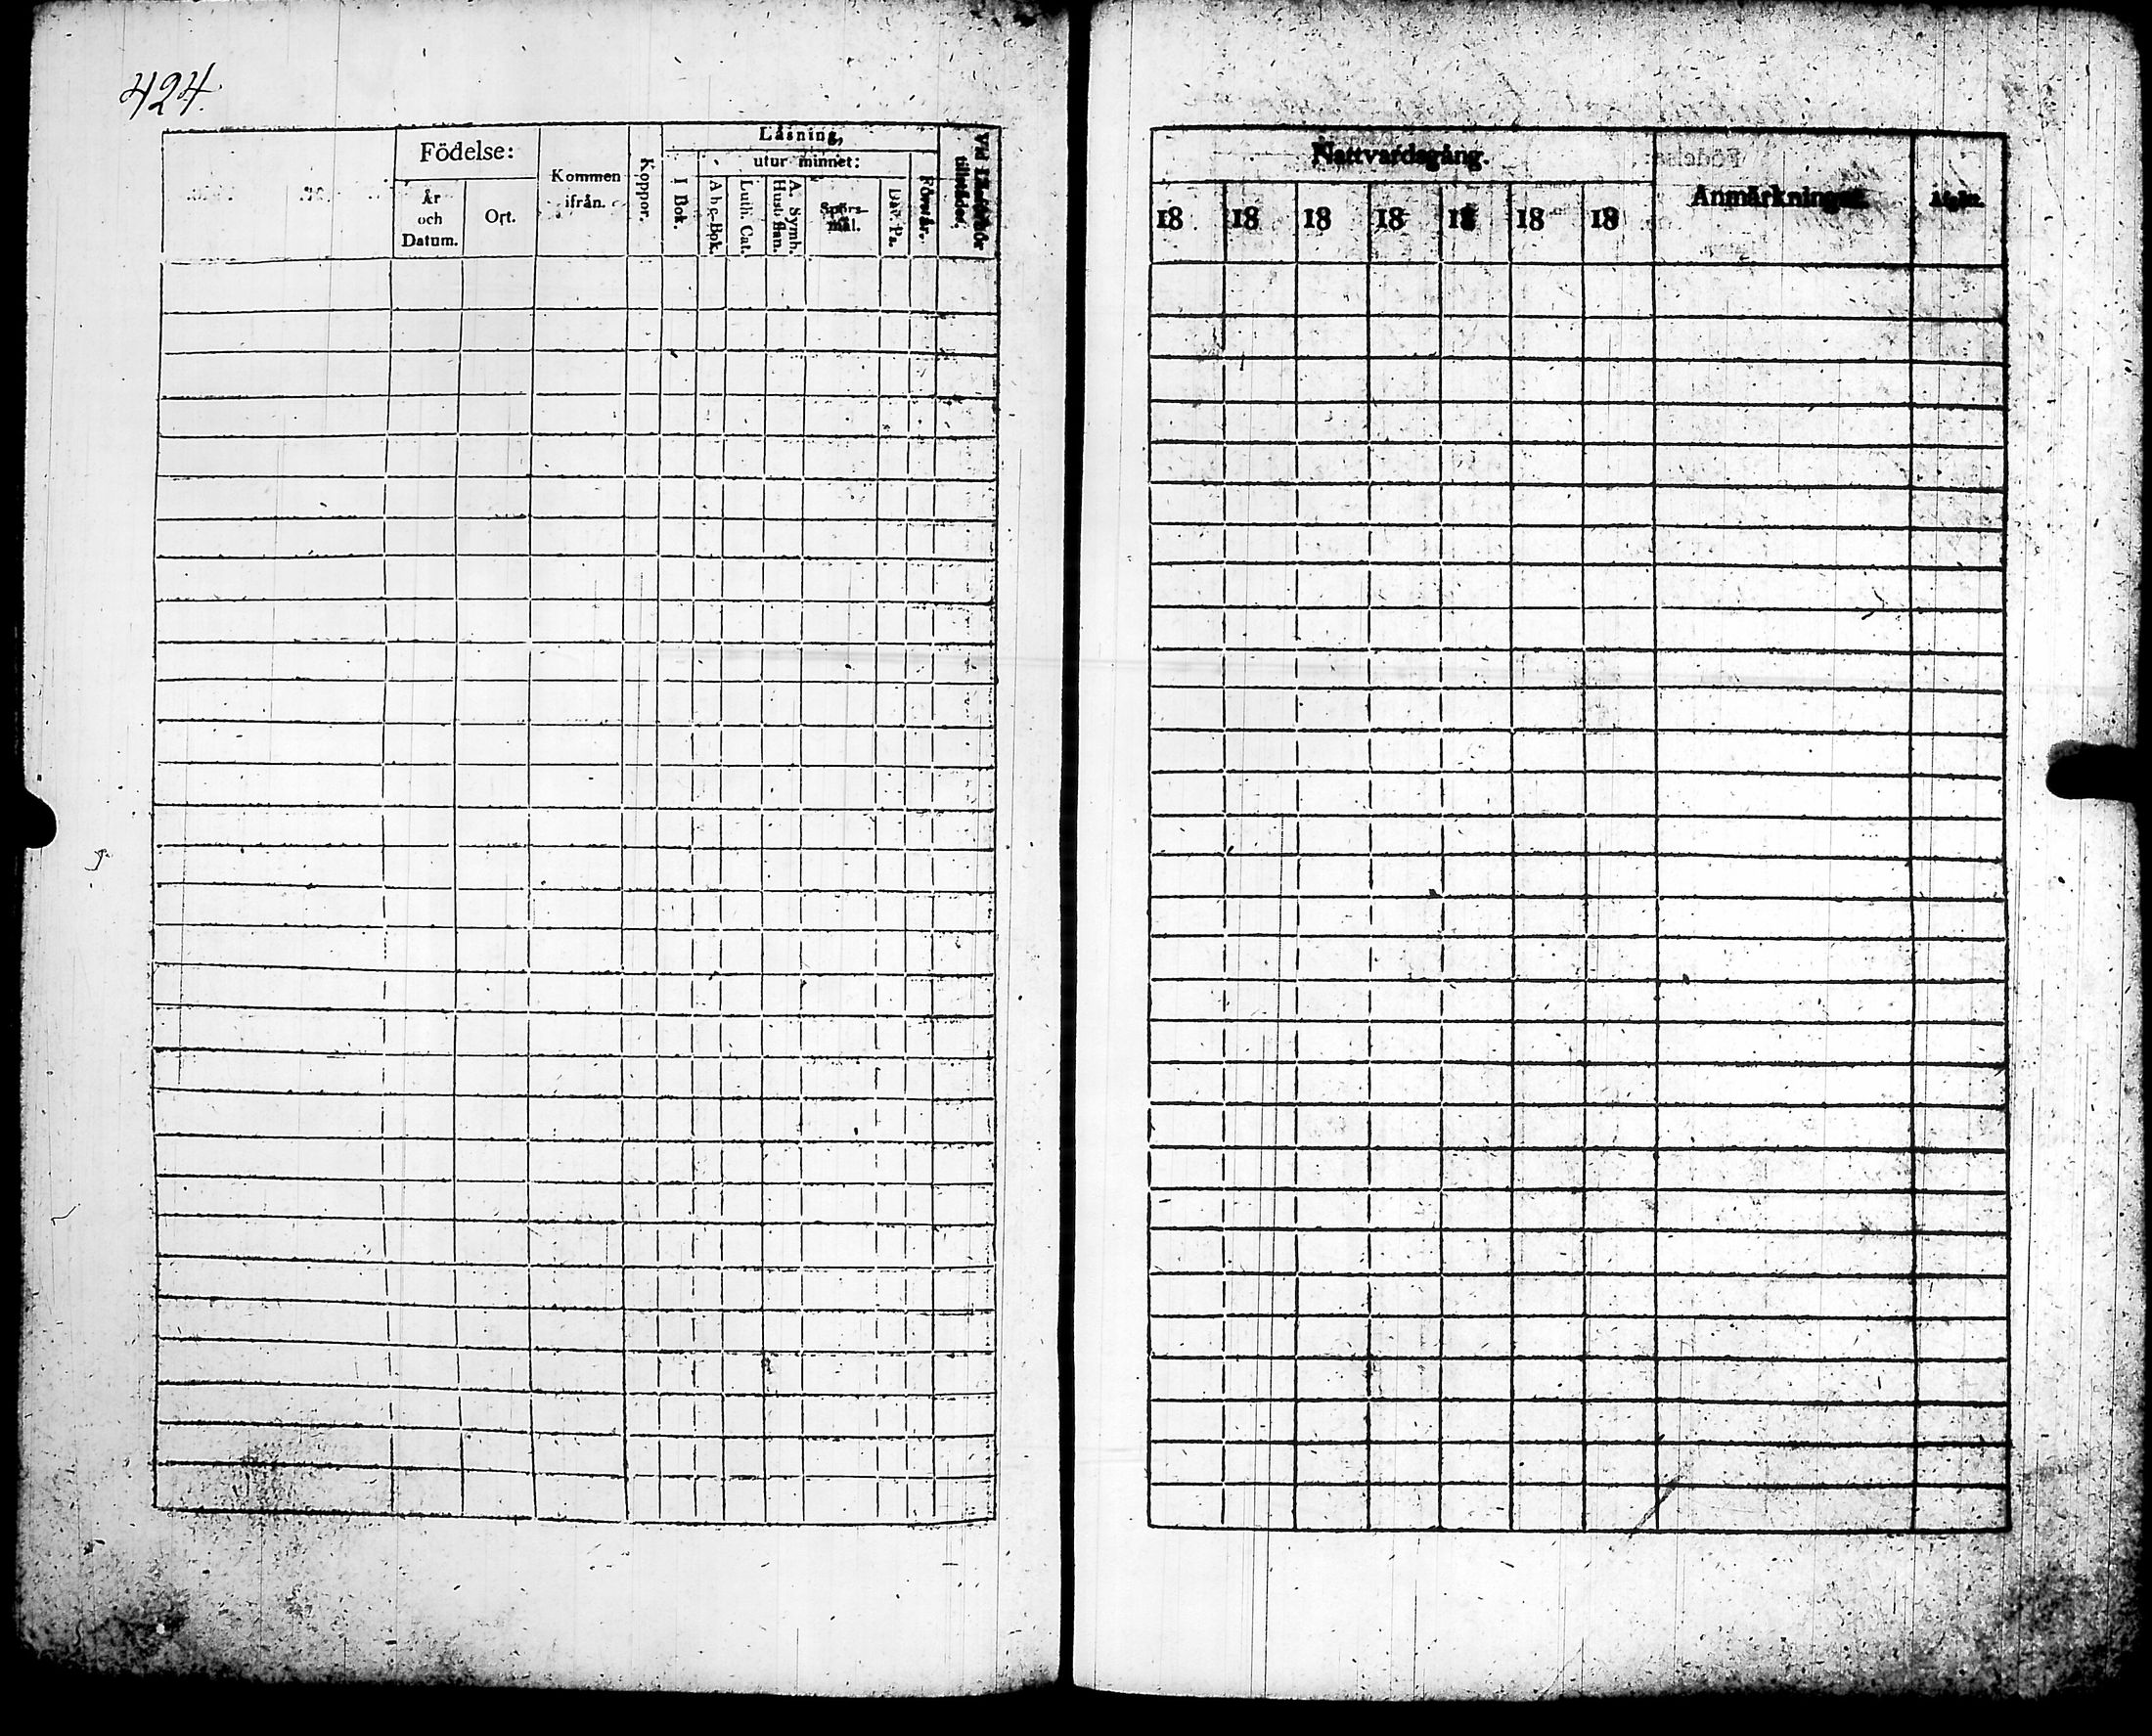 424.
Födelse:
År
och
Datum.
Ort.
Kommen
ifrån.
Koppor.
Läsning,
utur minnet:
I Bok.
A b c-Bok.
Luth. Cat.
A. Symb.
Hust. flan.
Spörs-
mål.
Dav. Ps.
Förstår.
Vid Läsförhör
tillstädes.
Nattvardsgång.
18 18 18 18 18 18 18
Anmärkningar.